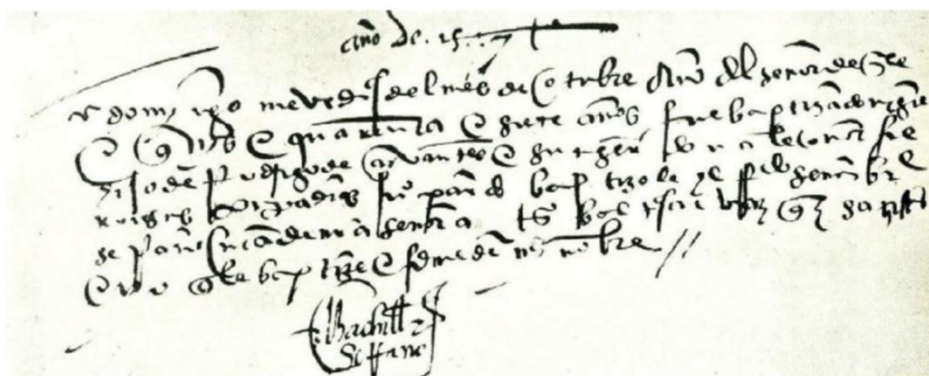 año de. 15
domingo nueve dias del mes de otubre año del señor de mill
e qos e quarenta e siete años fue baptizado miguel
hijo de Rodrigo de carvantes e su muger doña leonor fue
ron sus conpadres juo pardo baptizole el Rdo señor br
serrano cura de nra señora ts baltasar vazqz sacristan
e yo q le baptize e firme de mi nobre //
bachiller
serrano